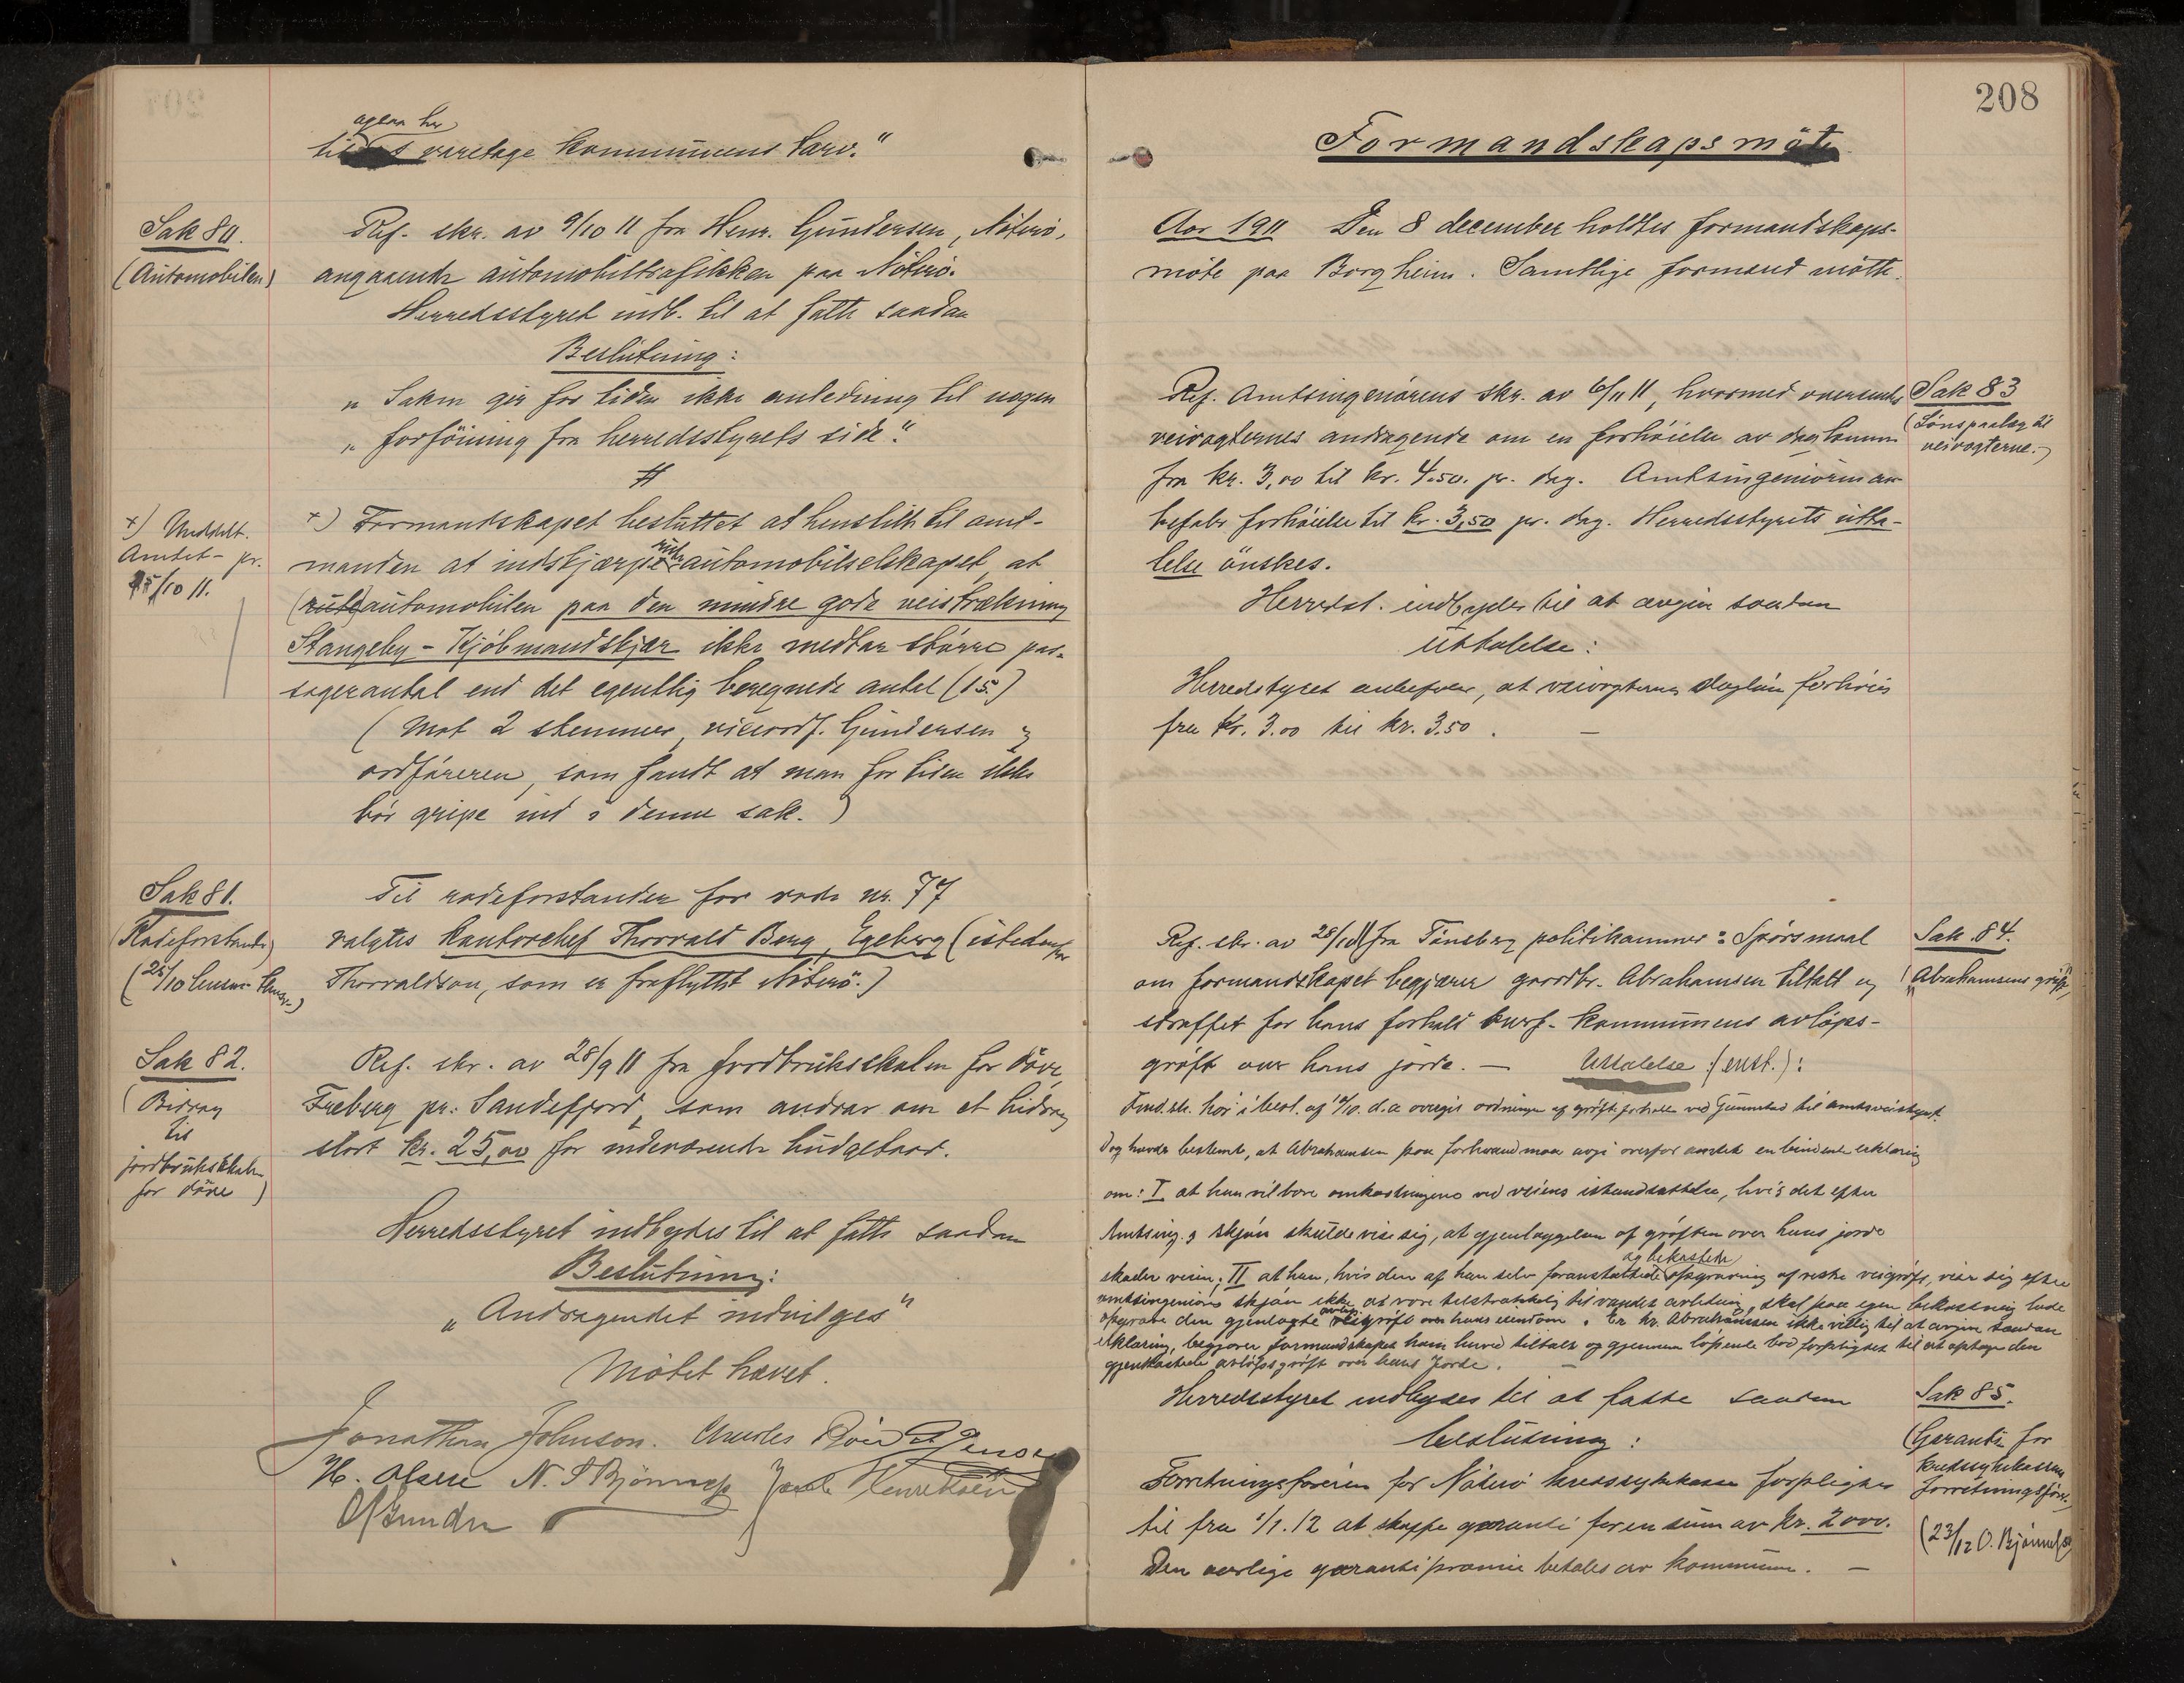 varetage kommunens tarv."
Sak 80.
(Automobilen)
Ref. skr. av 9/10 11 fra Henr. Gundersen, Nöterö,
angaaende automobiltrafikken paa Nöterö.
Herredsstyret indb. til at fatte saadan
Beslutning:
„ Saken gir for tiden ikke anledning til nogen
„ forföining fra herredsstyrets side."
+) Meddelt.
Amtet - pr.
/10 11.
+) Formandskapet besluttet at henstille til amt-
manden at indskjærpe rute automobilselskapet, at
(rute) automobilen paa den mindre gode veistrækning
Stangeby - Kjöbmandskjær ikke medtar större pas-
sagerantal end det egentlig beregnede antal (15.)
( Mot 2 stemmer, viceordf. Gundersen og
ordföreren, som fandt at man for tiden ikke
bör gripe ind i denne sak. )
Sak 81.
(Rodeforstander)
(25/10
Til rodeforstander for rode nr. 77
valgtes kontorchef Thorvald Berg, Egeberg (istedenfor
Thorvaldson, som er fraflyttet Nöterö.)
Sak 82.
( Bidrag
til
jordbruksskolen
for döve )
Ref. skr. av 28/9 11 fra Jordbruksskolen for döve,
Freberg pr. Sandefjord, som andrar om et bidrag
stort kr. 25,00 for indeværende budgetaar.
Herredsstyret indbydes til at fatte saadan
Beslutning:
„ Andragendet indvilges"
Mötet hævet.
Jonathan Johnson. Charles
H. Olsen N. S Bjönness Jacob Henriksen
O Gundersen
208
Formandskapsmöte
Aar 1911 Den 8 december holdtes formandskaps-
möte paa Borgheim. Samtlige formænd mötte.
Sak 83
(Lönspaalæg til
veivogterne.)
Ref. Amtsingeniörens skr. av 6/11 11, hvormed oversendes
veivogternes andragende om en forhöielse av daglönnen
fra kr. 3,00 til kr. 4.50. pr. dag. Amtsingeniören an-
befaler forhöielse til kr. 3,50 pr. dag. Herredsstyrets utta-
lelse önskes.
Herredsst. indbydes til at avgive saadan
uttalelse:
Herredstyret anbefaler, at veivogternes daglön forhöies
fra kr. 3.00 til kr. 3.50.
Sak 84.
(Abrahamsens gröft)
Ref. skr. av 28/10 11 fra Tönsberg politikammer: Spörsmaal
om formandskapet begjærer gaardbr. Abrahamsen tiltalt og
straffet for hans forhold kommunens avlöps-
gröft over hans jorde. — Uttalelse (enst.):
Fmd.sk. har i besl. af /10. d.a overgit ordningen af gröfteforholdene ved Gunnestad til amtsveistyret.
Dog havde bestemt, at Abrahamsen paa forhaand maa avgi overfor amtet en bindende erklæring
om: I at han vil bære omkostningerne ved veiens istandsættelse, hvis det efter
Amtsing.s skjön skulde vise sig, at gjenlæggelsen af gröften over hans jorde
skader veien; II at han, hvis den af han selv foranstaltede og bekostede opgravning af vestre veigröft, viser sig efter
amtsingeniörens skjön ikke at være tilstrækkelig til vandets avledning, skal paa egen bekostning lade
opgrave den gjenlagte gröft over hans eiendom. Er hr. Abrahamsen ikke villig til at avgive saadan
erklæring, begjærer formandskapet ham herved tiltalt og gjennem löpende bod forpligtet til at optage den
gjenkastede avlöpsgröft over hans Jorde.
Sak 85.
(Garanti for
kredssykekassens
forretningsförer.)
(23/12 O. Bjönness)
Herredsstyret indbydes til at fatte saadan
beslutning:
Forretningsföreren for Nöterö kredssykekasse forpligtes
til fra 1/1. 12 at skaffe garanti for en sum av kr. 2000.
Den aarlige garantipræmie betales av kommunen. —